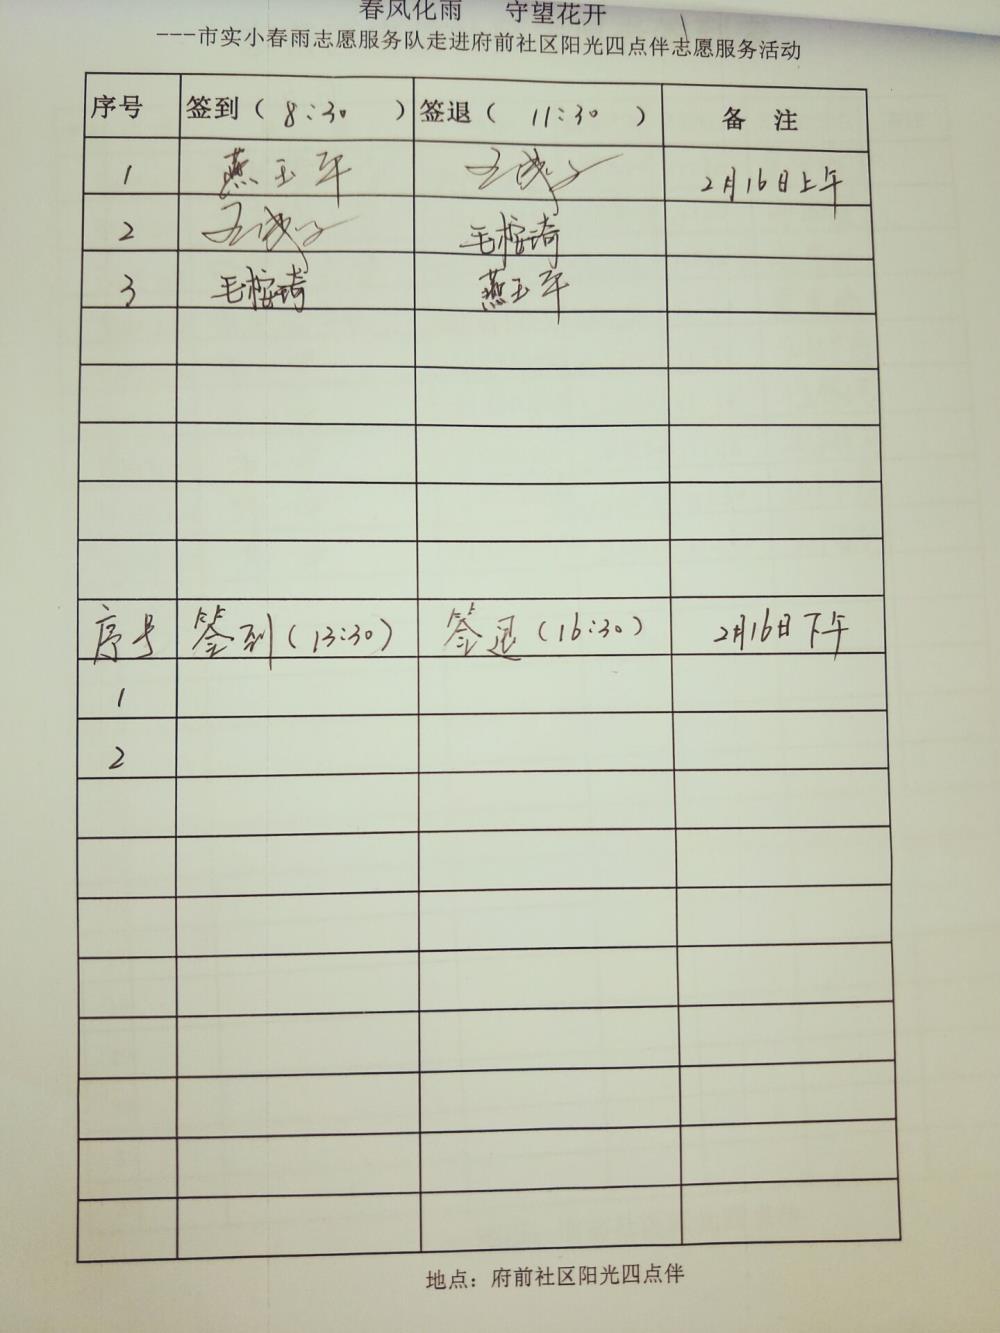 春风化雨 守望花开
---市实小春雨志愿服务队走进府前社区阳光四点伴志愿服务活动
序号 签到（ 8:30 ） 签退（ 11:30 ） 备 注
1 燕玉平 2月16日上午
2
3 燕玉平
序号 签到（13:30） 签退（16:30） 2月16日下午
1
2
地点：府前社区阳光四点伴